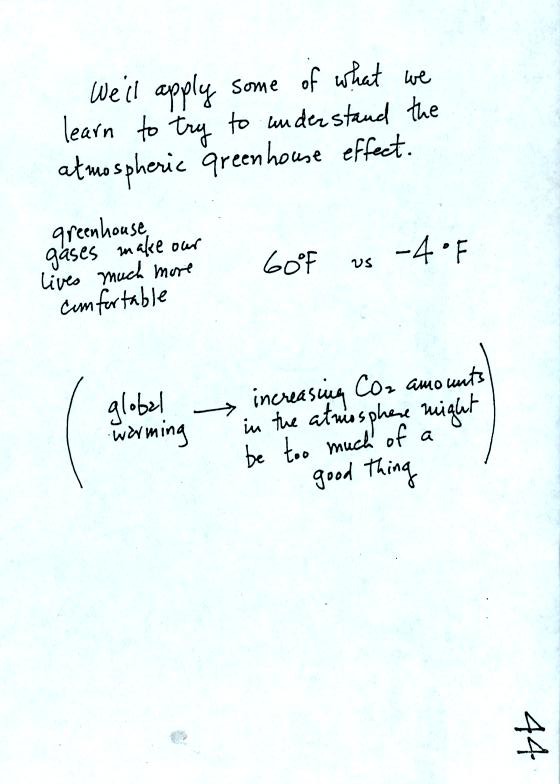 We'll apply some of what we
learn to try to understand the
atmospheric greenhouse effect.
greenhouse
gases make our
lives much more
comfortable
60°F vs -4°F
(global
warming → increasing CO2 amounts
in the atmosphere might
be too much of a
good thing)
44